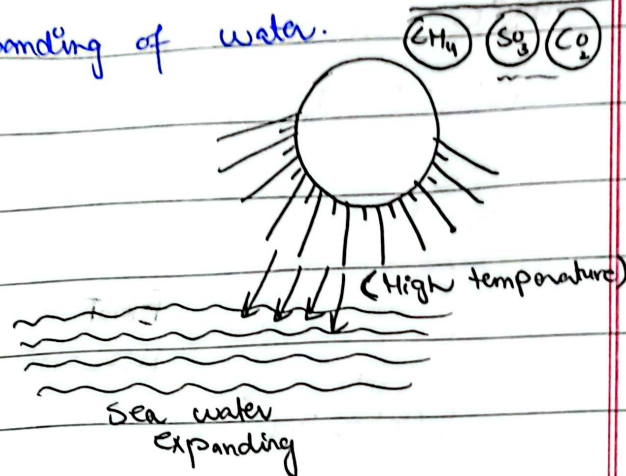 anding of water.
CH₄ SO₃ CO₂
(High temperature)
Sea water
expanding